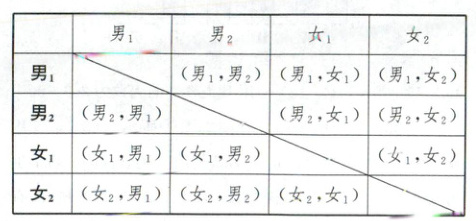 男₁ 男₂ 女₁ 女₂
男₁ (男₁,男₂) (男₁,女₁) (男₁,女₂)
男₂ (男₂,男₁) (男₂,女₁) (男₂,女₂)
女₁ (女₁,男₁) (女₁,男₂) (女₁,女₂)
女₂ (女₂,男₁) (女₂,男₂) (女₂,女₁)